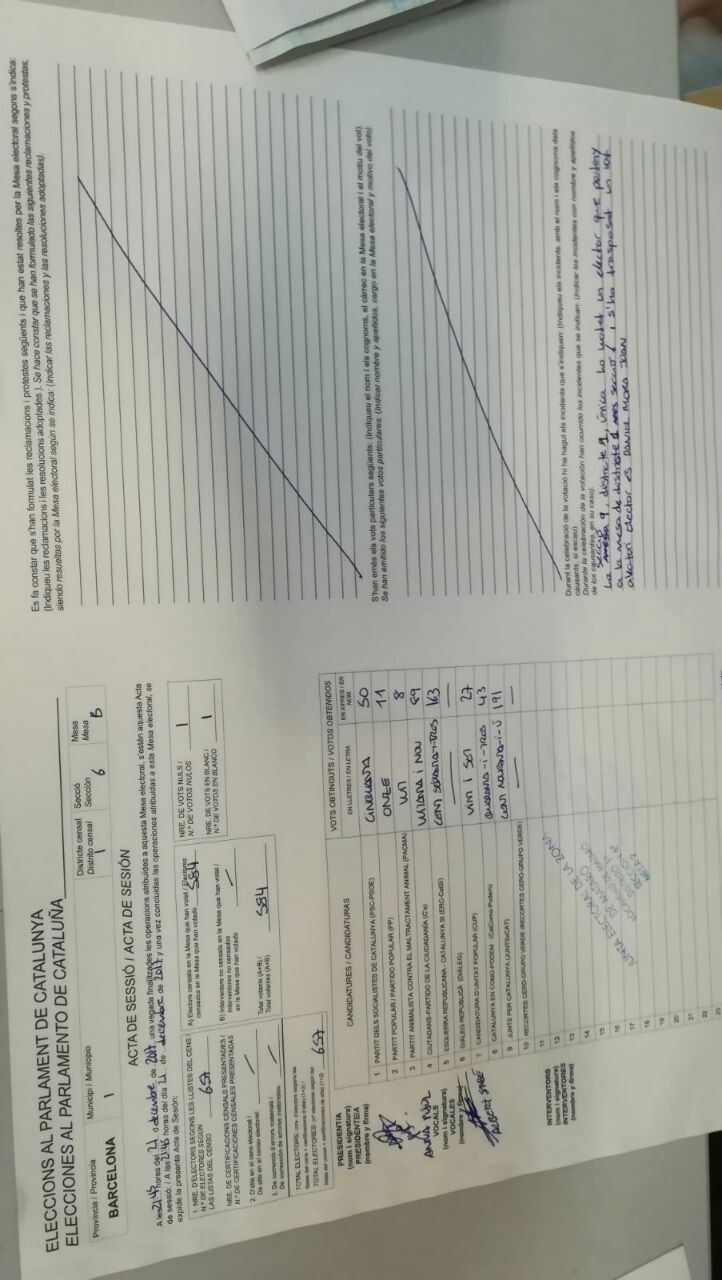 ELECCIONS AL PARLAMENT DE CATALUNYA
ELECCIONES AL PARLAMENTO DE CATALUÑA
Provincia / Provincia
Municipi / Municipio
Districte censal
Distrito censal
Secció
Sección
Mesa
Mesa
BARCELONA 1
1
6
B
ACTA DE SESSIÓ / ACTA DE SESIÓN
A les 21:45 hores del 21 d desembre de 2017, una vegada finalitzades les operacions atribuïdes a aquesta Mesa electoral, s'estén aquesta Acta
de sessió. / A las 21:45 horas del día 21 de desembre de 2017 y una vez concluidas las operaciones atribuidas a esta Mesa electoral, se
expide la presente Acta de Sesión:
1. NRE. D'ELECTORS SEGONS LES LLISTES DEL CENS /
N.º DE ELECTORES SEGÚN
LAS LISTAS DEL CENSO
657
NRE. DE CERTIFICACIONS CENSALS PRESENTADES /
N.º DE CERTIFICACIONES CENSALES PRESENTADAS
2. D'alta en el cens electoral /
De alta en el censo electoral
3. De correcció d'errors materials /
De corrección de errores materiales
TOTAL ELECTORS:
TOTAL ELECTORES:
657
A) Electors censats en la Mesa que han votat / Electores
censados en la Mesa que han votado
584
B) Interventors no censats en la Mesa que han votat /
Interventores no censados
en la Mesa que han votado
Total votants (A+B) /
Total votantes (A+B)
584
NRE. DE VOTS NULS /
N.º DE VOTOS NULOS
1
NRE. DE VOTS EN BLANC /
N.º DE VOTOS EN BLANCO
1
CANDIDATURES / CANDIDATURAS
VOTS OBTINGUTS / VOTOS OBTENIDOS
EN LLETRES / EN LETRA
EN XIFRES / EN NÚM.
1 PARTIT DELS SOCIALISTES DE CATALUNYA (PSC-PSOE) CINQUANTA 50
2 PARTIT POPULAR / PARTIDO POPULAR (PP) ONZE 11
3 PARTIT ANIMALISTA CONTRA EL MALTRACTAMENT ANIMAL (PACMA) 8
4 CIUTADANS-PARTIDO DE LA CIUDADANÍA (C's) 89
5 ESQUERRA REPUBLICANA - CATALUNYA SÍ (ERC-CatSí) 163
6 DIÀLEG REPUBLICÀ (DIÀLEG)
7 CANDIDATURA D'UNITAT POPULAR (CUP) 27
8 CATALUNYA EN COMÚ-PODEM (CatComú-Podem) 43
9 JUNTS PER CATALUNYA (JUNTSxCAT) 191
10 RECORTES CERO-GRUPO VERDE (RECORTES CERO-GRUPO VERDE)
11
12
13
14
15
16
17
18
19
20
21
22
23
PRESIDENT/A
(nom i signatura)
PRESIDENTE/A
(nombre y firma)
VOCALS
(nom i signatura)
VOCALES
(nombre y firma)
INTERVENTORS
(nom i signatura)
INTERVENTORES
(nombre y firma)
JUNTA ELECTORAL DE LA ZONA
Es fa constar que s'han formulat les reclamacions i protestes següents i que han estat resoltes per la Mesa electoral segons s'indica:
(Indiqueu les reclamacions i les resolucions adoptades). Se hace constar que se han formulado las siguientes reclamaciones y protestas,
siendo resueltas por la Mesa electoral según se indica: (Indicar las reclamaciones y las resoluciones adoptadas).
S'han emès els vots particulars següents: (Indiqueu el nom i els cognoms, el càrrec en la Mesa electoral i el motiu del vot).
Se han emitido los siguientes votos particulares: (Indicar nombre y apellidos, cargo en la Mesa electoral y motivo del voto).
Durant la celebració de la votació hi ha hagut els incidents que s'indiquen: (Indiqueu els incidents, amb el nom i els cognoms dels
causants, si escau).
Durante la celebración de la votación han ocurrido los incidentes que se indican: (Indicar los incidentes con nombre y apellidos
de los causantes, en su caso).
secció
La 9, districte 1, única ha votat un elector que
a la mesa de districte 1 secció 6 i s'ha traspasat un vot
elector es Daniel Mora Juan